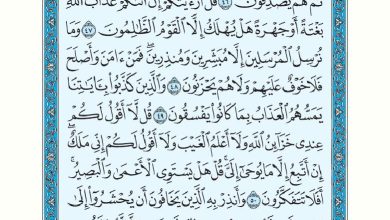 ثُمَّ هُمْ يَصْدِفُونَ ٤٦ قُلْ أَرَءَيْتَكُمْ إِنْ أَتَىٰكُمْ عَذَابُ ٱللَّهِ
بَغْتَةً أَوْ جَهْرَةً هَلْ يُهْلَكُ إِلَّا ٱلْقَوْمُ ٱلظَّٰلِمُونَ ٤٧ وَمَا
نُرْسِلُ ٱلْمُرْسَلِينَ إِلَّا مُبَشِّرِينَ وَمُنذِرِينَ ۖ فَمَنْ ءَامَنَ وَأَصْلَحَ
فَلَا خَوْفٌ عَلَيْهِمْ وَلَا هُمْ يَحْزَنُونَ ٤٨ وَٱلَّذِينَ كَذَّبُوا۟ بِـَٔايَٰتِنَا
يَمَسُّهُمُ ٱلْعَذَابُ بِمَا كَانُوا۟ يَفْسُقُونَ ٤٩ قُل لَّآ أَقُولُ لَكُمْ
عِندِى خَزَآئِنُ ٱللَّهِ وَلَآ أَعْلَمُ ٱلْغَيْبَ وَلَآ أَقُولُ لَكُمْ إِنِّى مَلَكٌ ۖ
إِنْ أَتَّبِعُ إِلَّا مَا يُوحَىٰٓ إِلَىَّ ۚ قُلْ هَلْ يَسْتَوِى ٱلْأَعْمَىٰ وَٱلْبَصِيرُ ۚ
أَفَلَا تَتَفَكَّرُونَ ٥٠ وَأَنذِرْ بِهِ ٱلَّذِينَ يَخَافُونَ أَن يُحْشَرُوٓا۟ إِلَىٰ